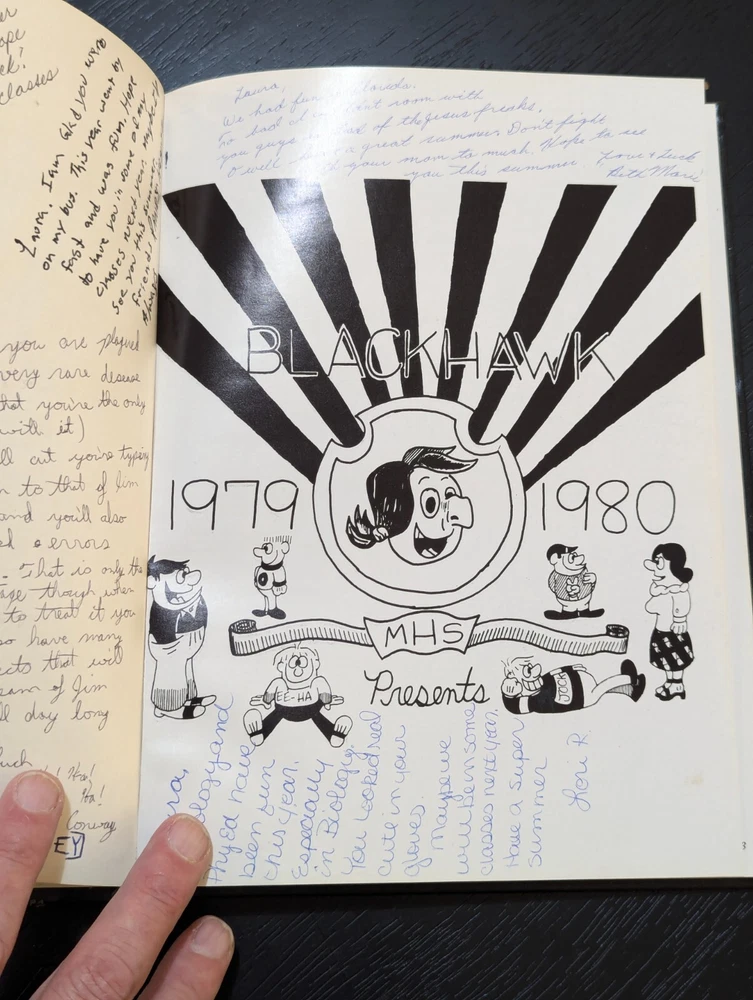 er
ope
ck?
classes
Laura, I am Glad you were
on my bus. This year went by
fast and was fun. Hope
to have you in some of my
classes next year. Maybe I'll
see you this summer.
friends
you are plagued
very rare disease
that you're the only
with it)
ll cut you're typing
n to that of Jim
and you'll also
ed 0 errors
. That is only the
tage though, when
to treat it you
so have many
ects that will
eam of Jim
ll day long
uck
Ha!
Ha!
Conway
EY
Laura,
We had fun
To bad
room with
you guys
of the Jesus freaks.
O well
a great summer Don't fight
your mom to much. Hope to see
you this summer. Love & Luck
Beth Marie
BLACKHAWK
1979 1980
MHS
Presents
EE-HA
JOCK
ra,
ology and
Phy Ed have
been fun
this year.
Especially
in Biology.
You looked real
cute in your
gloves.
Maybe we
will be in some
classes next year.
Have a super
summer
Lori R.
3